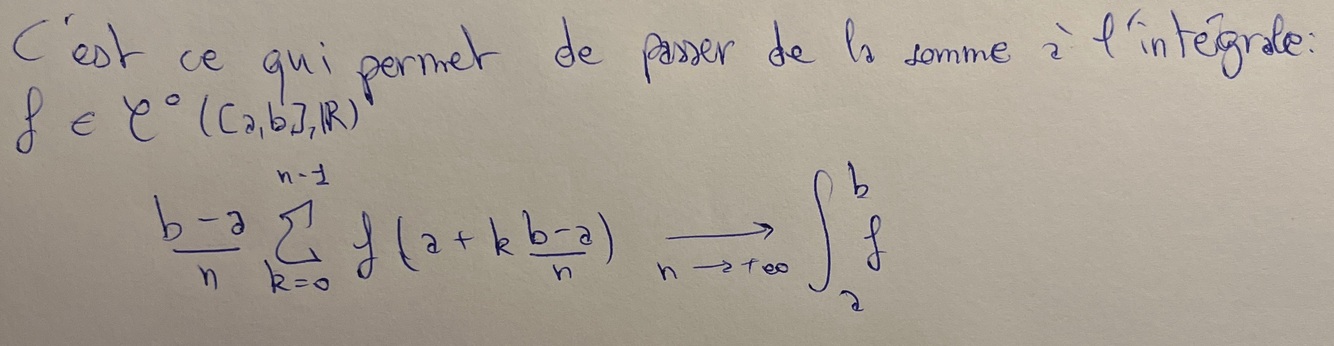 C'est ce qui permet de passer de la somme à l'intégrale:
f ∈ 𝒞⁰([a,b],ℝ)
\frac{b-a}{n} \sum_{k=0}^{n-1} f(a+k\frac{b-a}{n}) \xrightarrow[n→+∞]{} \int_a^b f